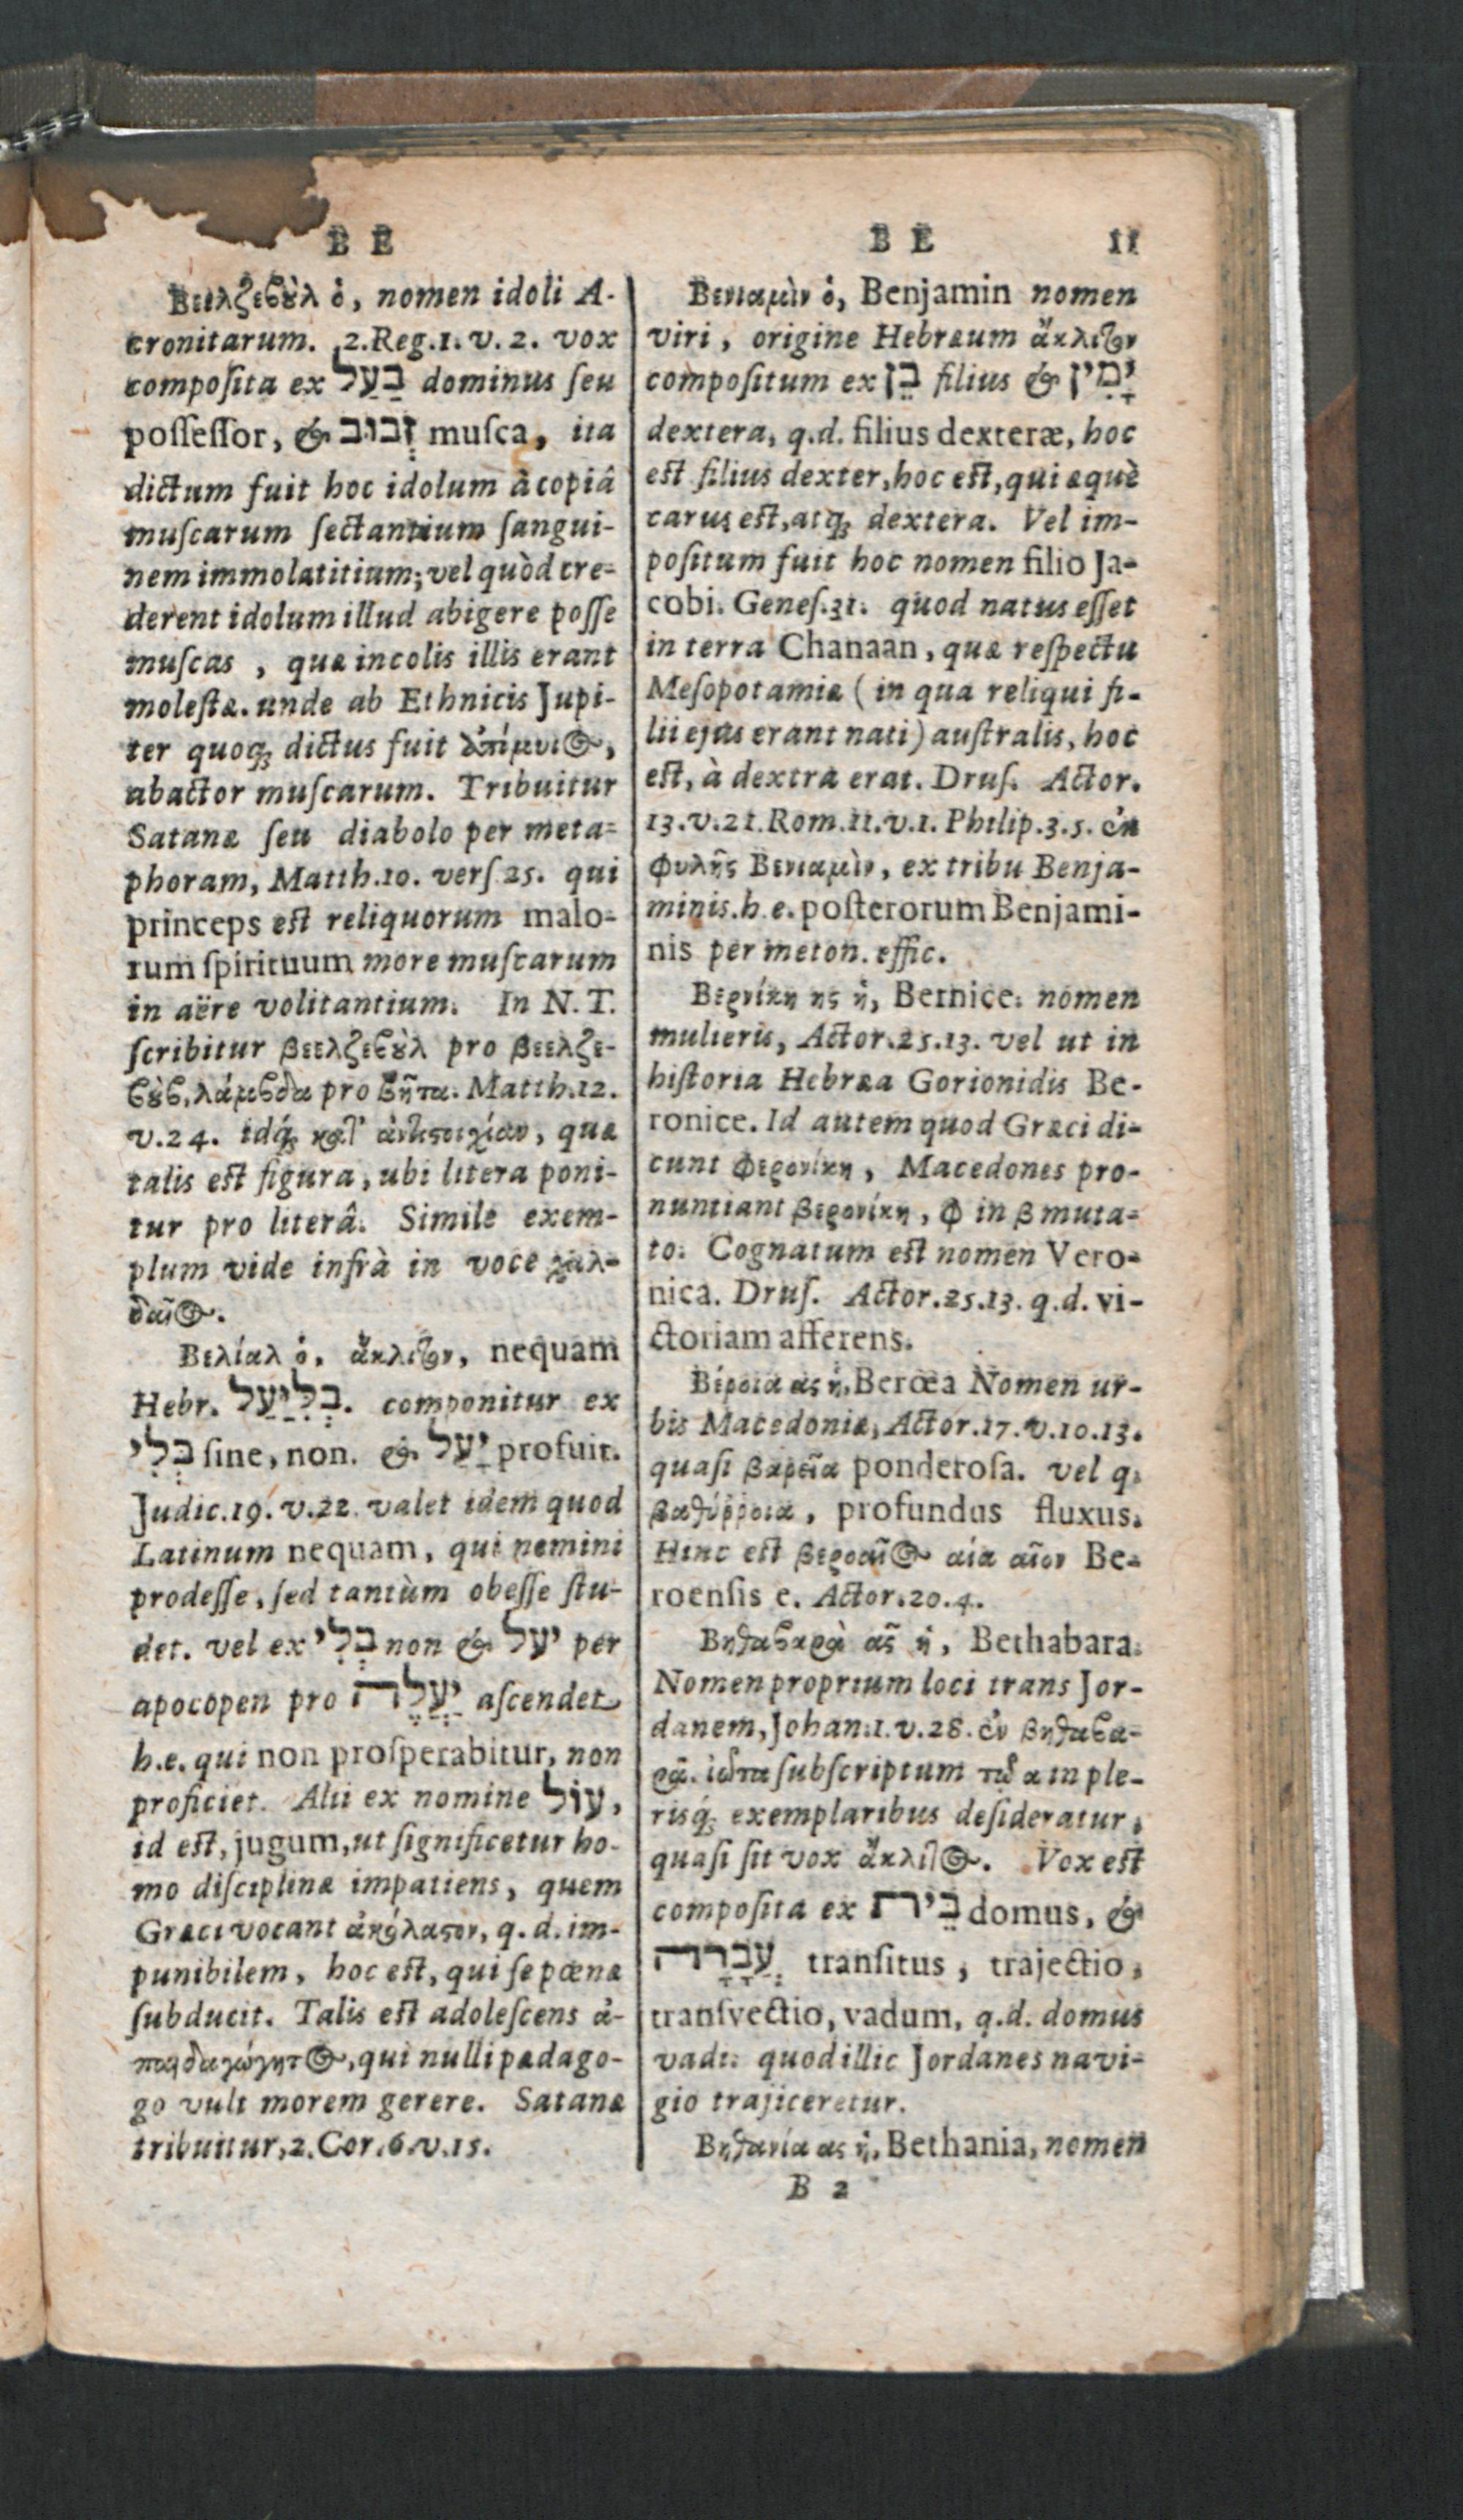 B E
Βεελζεβοὺλ ὁ, nomen idoli A-
cronitarum. 2.Reg.1.v.2. vox
compoſita ex בַּעַל dominus ſeu
poſſeſſor, & זְבוּב muſca, ita
dictum fuit hoc idolum à copiâ
muſcarum ſectantium ſangui-
nem immolatitium; vel quòd cre-
derent idolum illud abigere poſſe
muſcas, quæ incolis illis erant
moleſtæ. unde ab Ethnicis Jupi-
ter quoq; dictus fuit ἀπόμυιος,
abactor muſcarum. Tribuitur
Satanæ ſeu diabolo per meta-
phoram, Matth.10. verſ.25. qui
princeps eſt reliquorum malo-
rum ſpirituum more muſcarum
in aëre volitantium. In N.T.
ſcribitur βεελζεβοὺλ pro βεελζε-
βοὺβ, λάμβδα pro βῆτα. Matth.12.
v.24. idq́; κατ' ἀντιστοιχίαν, quæ
talis eſt figura, ubi litera poni-
tur pro literâ. Simile exem-
plum vide infrà in voce χαλ-
δαῖος.
Βελίαλ ὁ, ἄκλιτον, nequam
Hebr. בְּלִיַּעַל. componitur ex
בְּלִי ſine, non. & יַעַל profuit.
Judic.19.v.22. valet idem quod
Latinum nequam, qui nemini
prodeſſe, ſed tantùm obeſſe ſtu-
det. vel ex בְּלִי non & יעל per
apocopen pro יַעֲלֶה aſcendet
h.e. qui non proſperabitur, non
proficiet. Alii ex nomine עול,
id eſt, jugum, ut ſignificetur ho-
mo diſciplinæ impatiens, quem
Græci vocant ἀκόλαστον, q.d. im-
punibilem, hoc eſt, qui ſe pœnæ
ſubducit. Talis eſt adoleſcens ἀ-
παιδαγώγητος, qui nulli pædago-
go vult morem gerere. Satanæ
tribuitur, 2.Cor.6.v.15.
B E 11
Βενιαμὶν ὁ, Benjamin nomen
viri, origine Hebræum ἄκλιτον
compoſitum ex בֵּן filius & יָמִין
dextera, q.d. filius dexteræ, hoc
eſt filius dexter, hoc eſt, qui æquè
carus eſt, atq; dextera. Vel im-
poſitum fuit hoc nomen filio Ja-
cobi. Geneſ.31. quod natus eſſet
in terra Chanaan, quæ reſpectu
Meſopotamiæ (in qua reliqui fi-
lii ejus erant nati) auſtralis, hoc
eſt, à dextra erat. Druſ. Actor.
13.v.21. Rom.11.v.1. Philip.3.5. ἐκ
φυλῆς Βενιαμὶν, ex tribu Benja-
minis. h.e. poſterorum Benjami-
nis per meton. effic.
Βερνίκη ης ἡ, Bernice. nomen
mulieris, Actor.25.13. vel ut in
hiſtoria Hebræa Gorionidis Be-
ronice. Id autem quod Græci di-
cunt φερονίκη, Macedones pro-
nuntiant βερονίκη, φ in β muta-
to. Cognatum eſt nomen Vero-
nica. Druſ. Actor.25.13. q.d. vi-
ctoriam afferens.
Βέροια ας ἡ, Berœa Nomen ur-
bis Macedoniæ, Actor.17.v.10.13.
quaſi βαρεῖα ponderoſa. vel q.
βαθύῤῥοια, profundus fluxus.
Hinc eſt βεροαῖος αία αῖον Be-
roenſis e. Actor.20.4.
Βηθαβαρὰ ᾶς ἡ, Bethabara.
Nomen proprium loci trans Jor-
danem, Johan.1.v.28. ἐν βηθαβα-
ρᾷ. ἰῶτα ſubſcriptum τῷ α in ple-
risq́; exemplaribus deſideratur,
quaſi ſit vox ἄκλιτος. Vox eſt
compoſita ex בֵּית domus, &
עֲבָרָה tranſitus, trajectio,
tranſvectio, vadum, q.d. domus
vadi: quod illic Jordanes navi-
gio trajiceretur.
Βηθανία ας ἡ, Bethania, nomen
B 2